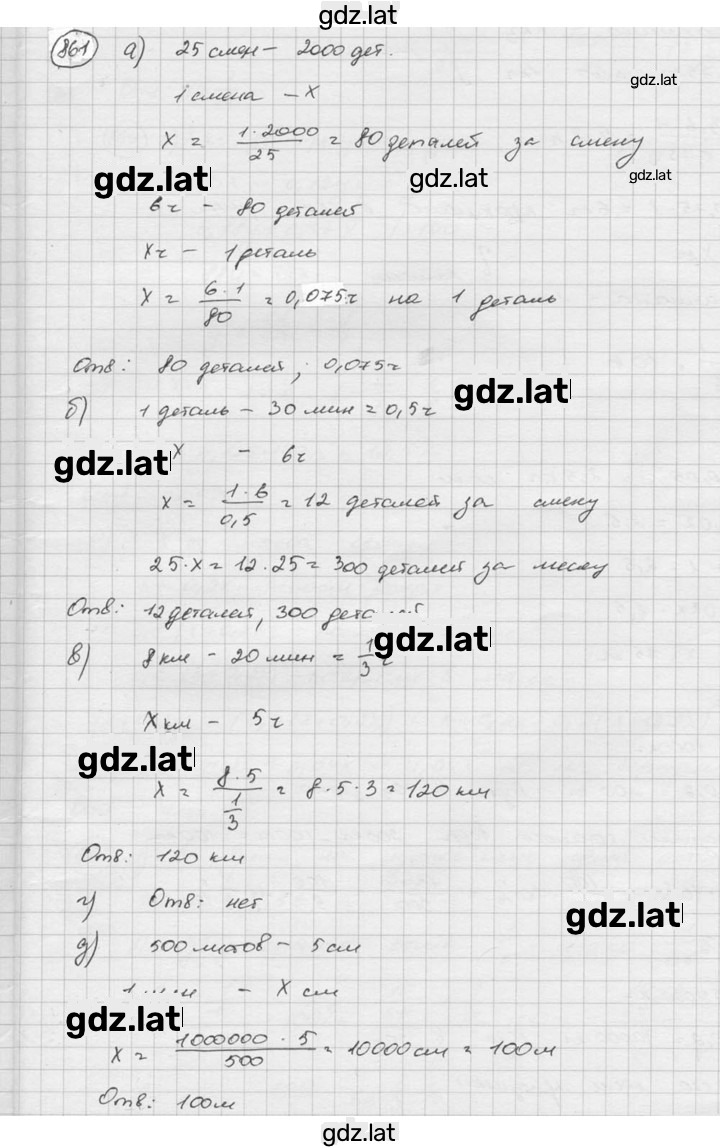 gdz.lat
861 а) 25 смен – 2000 дет.
gdz.lat
1 смена – x
x = 1·2000/25 = 80 деталей за смену
gdz.lat gdz.lat gdz.lat
6ч – 80 деталей
xч – 1 деталь
x = 6·1/80 = 0,075ч на 1 деталь
Отв: 80 деталей; 0,075ч
gdz.lat
б) 1 деталь – 30 мин = 0,5ч
gdz.lat x – 6ч
x = 1·6/0,5 = 12 деталей за смену
25·x = 12·25 = 300 деталей за месяц
Отв: 12 деталей, 300
gdz.lat
в) 8км – 20 мин = 1/3 ч
xкм – 5ч
gdz.lat
x = 8·5/1/3 = 8·5·3 = 120 км
Отв: 120 км
г) Отв: нет
gdz.lat
д) 500 листов – 5см
1 – x см
gdz.lat
x = 1000000·5/500 = 10000см = 100м
Отв: 100м
gdz.lat